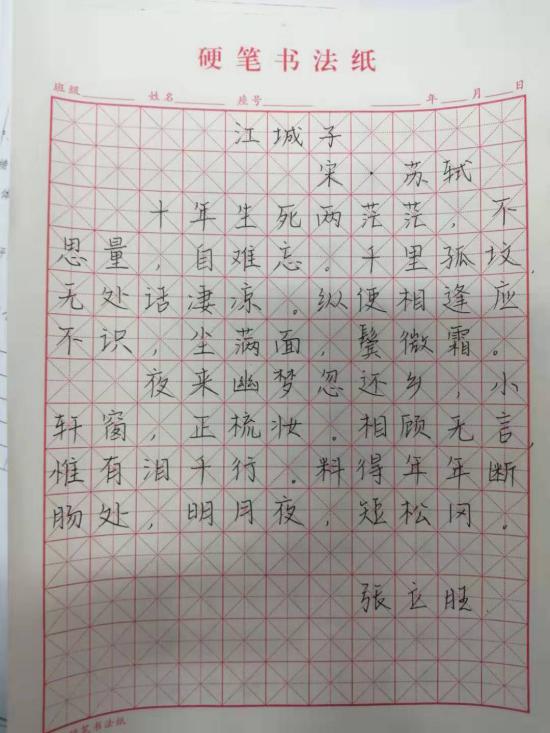 硬笔书法纸
班级 姓名 座号 年 月 日
江城子
宋·苏轼
十年生死两茫茫，不
思量，自难忘。千里孤坟，
无处话凄凉。纵使相逢应
不识，尘满面，鬓微霜。
夜来幽梦忽还乡，小
轩窗，正梳妆。相顾无言，
惟有泪千行。料得年年断
肠处，明月夜，短松冈。
张立旺
硬笔书法纸